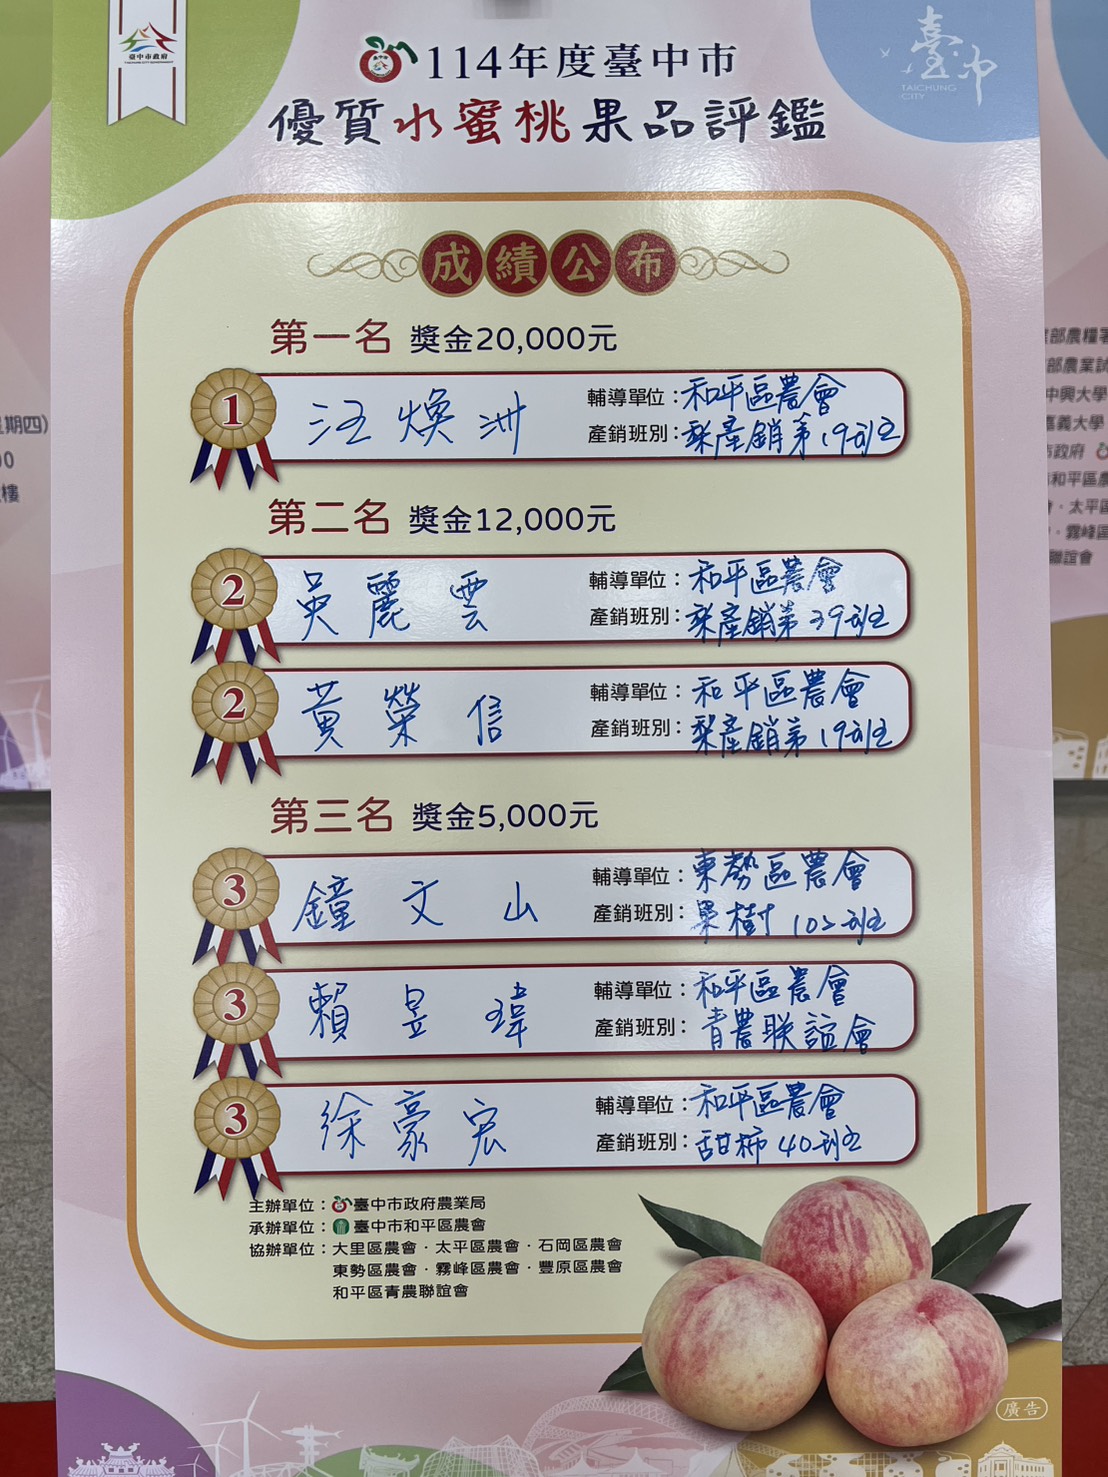 臺中市政府
TAICHUNG CITY GOVERNMENT
臺中
TAICHUNG
CITY
114年度臺中市
優質水蜜桃果品評鑑
成績公布
第一名 獎金20,000元
1 汪煥洲 輔導單位：和平區農會
產銷班別：梨產銷第19班
第二名 獎金12,000元
2 吳麗雲 輔導單位：和平區農會
產銷班別：梨產銷第39班
2 黃榮信 輔導單位：和平區農會
產銷班別：梨產銷第19班
第三名 獎金5,000元
3 鐘文山 輔導單位：東勢區農會
產銷班別：果樹102班
3 賴昱瑋 輔導單位：和平區農會
產銷班別：青農联誼會
3 徐豪宏 輔導單位：和平區農會
產銷班別：甜柿40班
主辦單位：臺中市政府農業局
承辦單位：臺中市和平區農會
協辦單位：大里區農會・太平區農會・石岡區農會
東勢區農會・霧峰區農會・豐原區農會
和平區青農聯誼會
廣告
期四)
樓
部農糧
部農業試
中興大學
嘉義大學
市政府
和平區
太平區
霧峰區
聯誼會